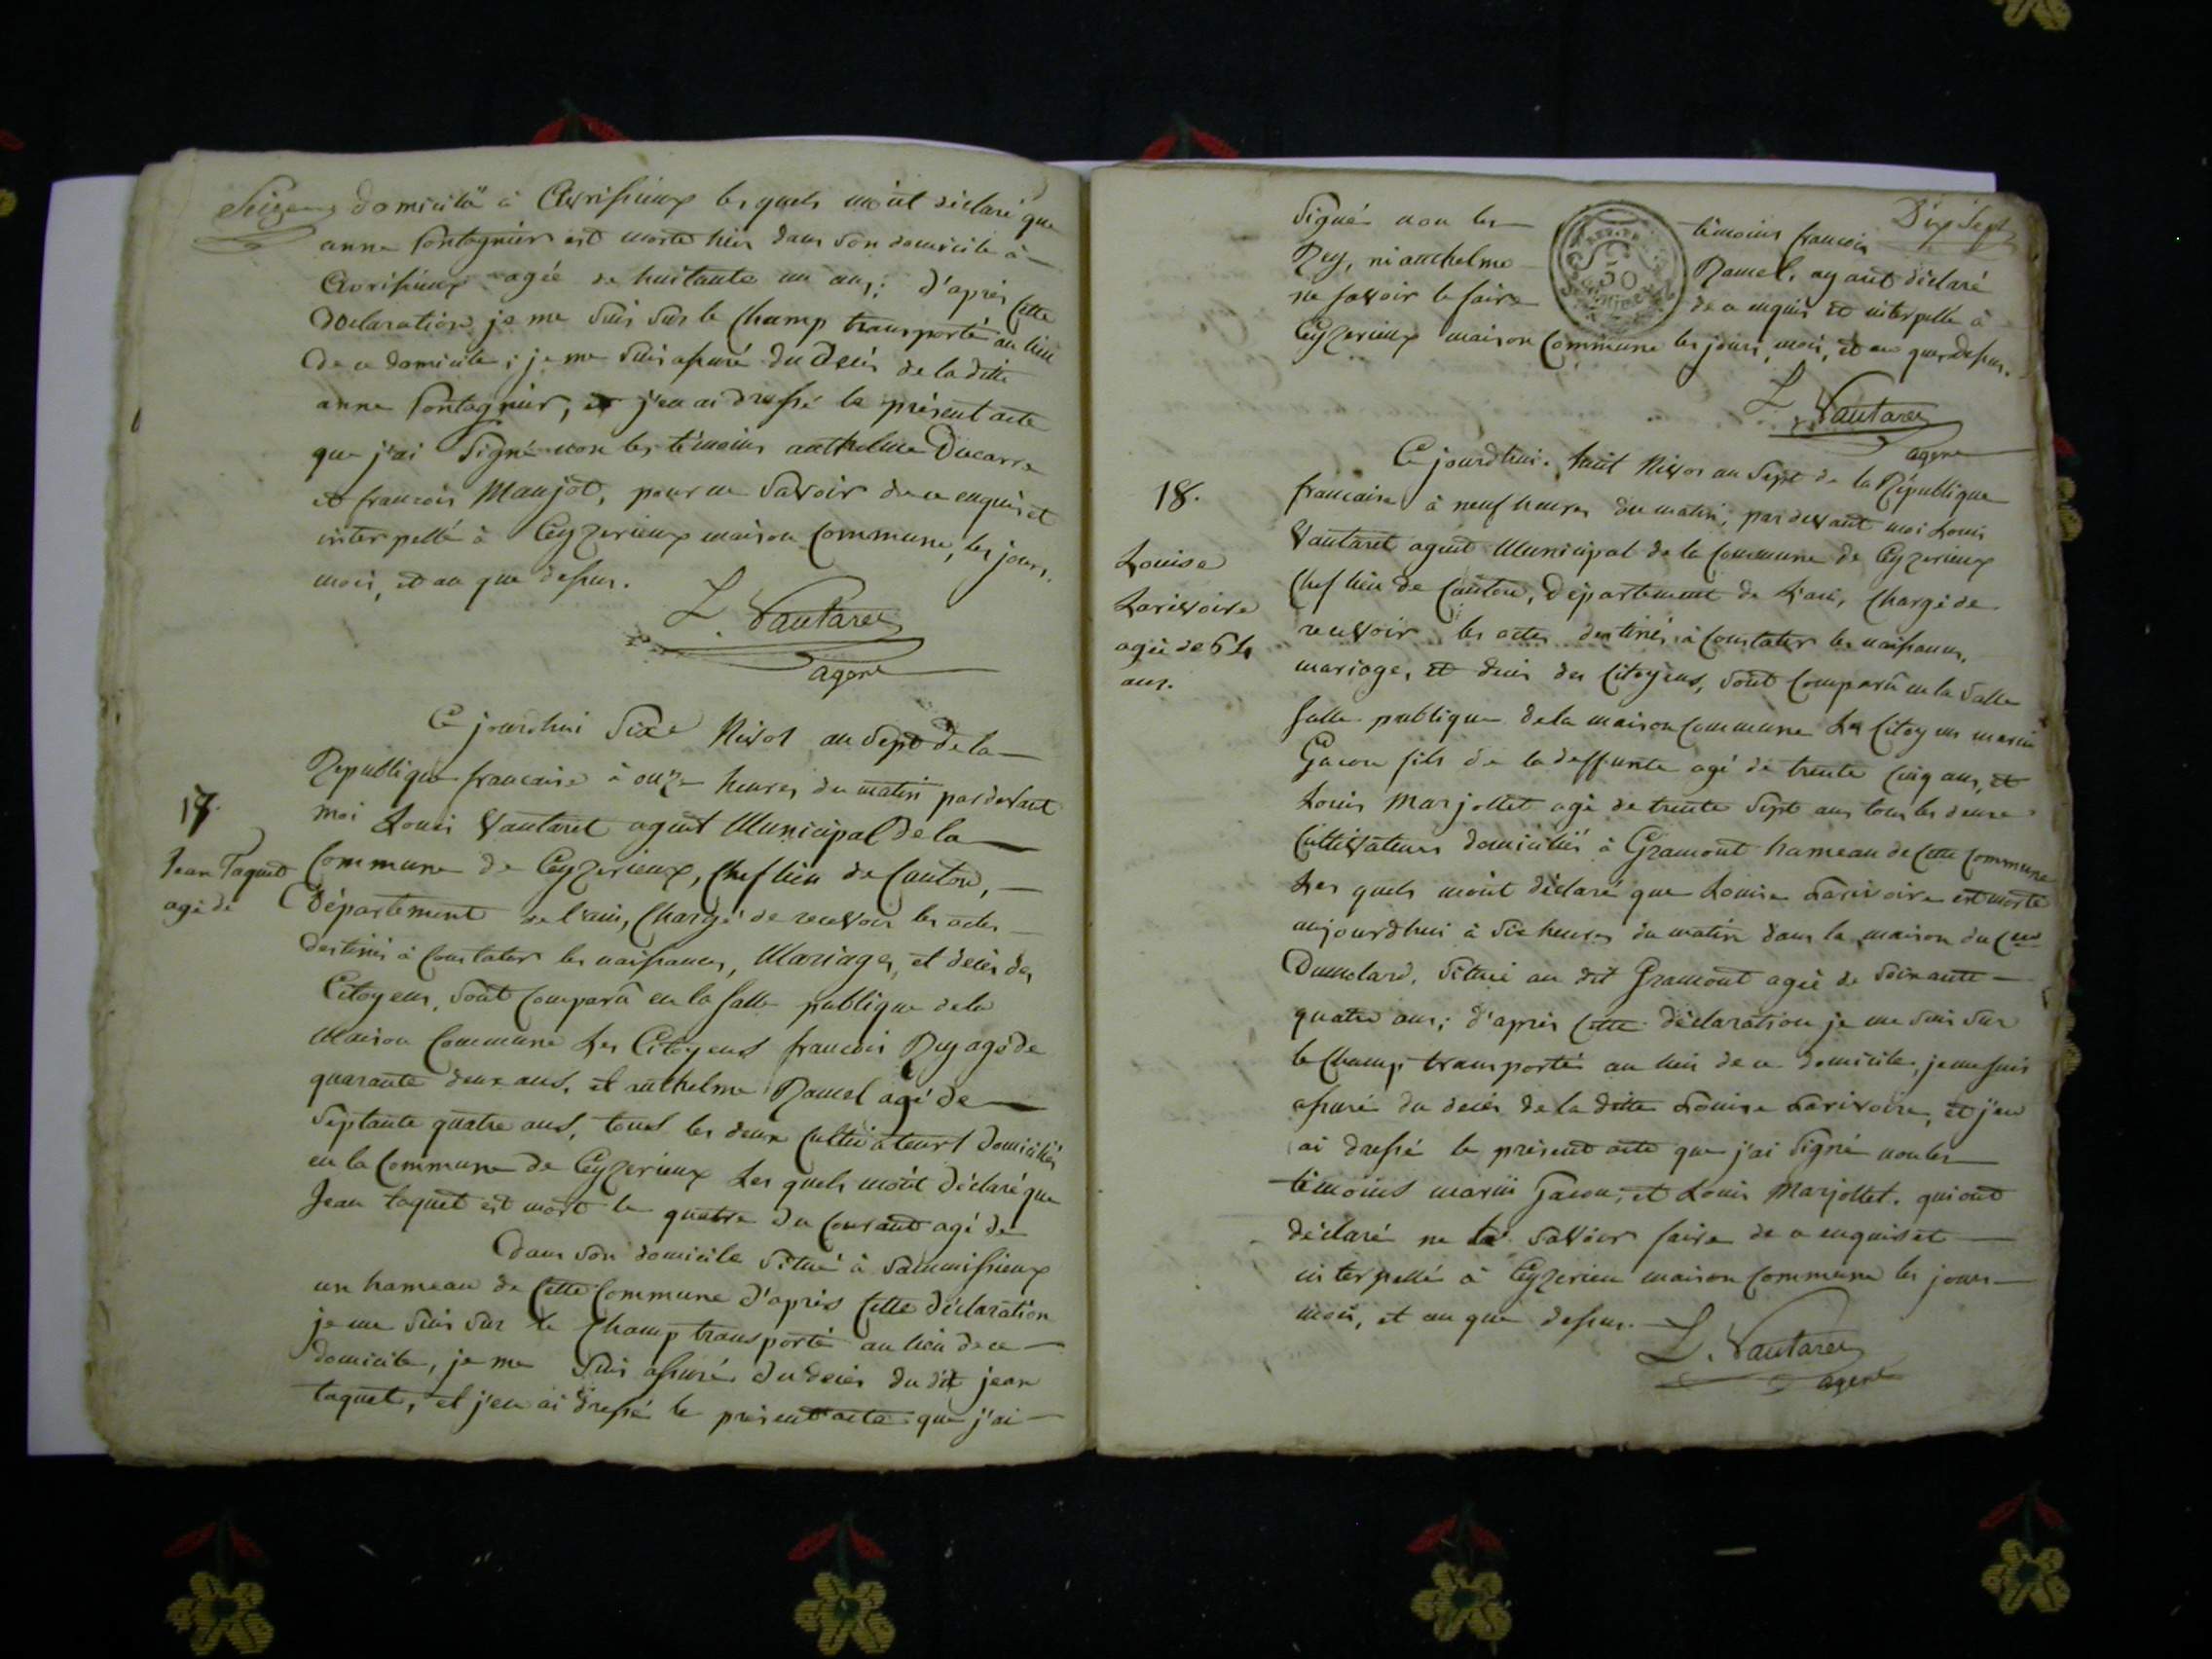 Seize domicilié à Avrissieux les quels mont déclaré que
anne Pontagnier est morte hier dans son domicile à
Avrissieux agée de huitante un ans; d'après cette
declaration je me suis sur le Champ transporté au lieu
de ce domicile; je me suis assuré du décès de la ditte
anne Pontagnier, et j'en ai dressé le présent acte
que j'ai signé non les témoins anthelme Ducarre
et francois Maujot, pour ne savoir de ce enquis et
interpellé à Ceyzerieux maison commune, les jours,
mois, et an que dessus.
L. Vautaret
agent
Ce jourdhui Sixe Nivos an Sept de la
Republique francaise à onze heures du matin pardevant
17.
moi Louis Vautaret agent Municipal de la
Jean Taquet
agé de
Commune de Ceyzerieux, Chef lieu de Canton,
Département de l'ain, Chargé de recevoir les actes
destinés à Constater les naissances, Mariages, et décès des
Citoyens, sont comparû en la salle publique de la
Maison Commune Les Citoyens francois Rey agé de
quarante deux ans, et anthelme Ramel agé de
septante quatre ans, tous les deux cultivateurs domiciliés
en la Commune de Ceyzerieux Les quels mont déclaré que
Jean taquet est mort le quatre du Courant agé de
dans son domicile situé à Sammissieux
un hameau de cette Commune d'après cette déclaration
je me suis sur le Champ transporté au lieu de ce
domicile, je me suis assuré du décès du dit jean
taquet, et j'en ai dressé le présent acte que j'ai
Dix Sept
signé non les témoins francois
Rey, ni anthelme Ramel, ayant déclaré
ne savoir le faire de ce enquis et interpellé à
Ceyzerieux maison Commune les jours, mois, et an que dessus.
L. Vautaret
agent
Ce jourdhui. huit Nivos an Sept de la République
18.
francaise à neuf heures du matin, pardevant moi Louis
Vautaret agent Municipal de la Commune de Ceyzerieux
Louise
Larivoire
agée de 64
ans.
Chef lieu de Canton, Département de L'ain, Chargé de
recevoir les actes destinés à Constater les naissances,
mariages, et décès des Citoyens, sont Comparû en la Salle
salle publique de la maison commune Les Citoyens marin
Gacon fils de la deffunte agé de trente cinq ans, et
Louis Marjollet agé de trente sept ans tous les deux
Cultivateurs domiciliés à Gramont hameau de cette commune
Les quels mont déclaré que Louise Larivoire est morte
aujourdhui à six heures du matin dans la maison du Cen
Dumolard, situé au dit Gramont agée de soixante
quatre ans; d'après cette déclaration je me suis sur
le Champ transporté au lieu de ce domicile, je me suis
assuré du décès de la ditte Louise Larivoire, et j'en
ai dressé le présent acte que j'ai signé non les
témoins marin Gacon, et Louis Marjollet. qui ont
déclaré ne le savoir faire de ce enquis et
interpellé à Ceyzerieu maison commune les jours
mois, et an que dessus.
L. Vautaret
agent